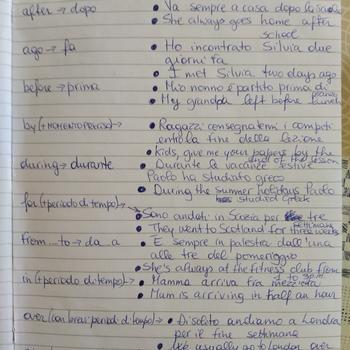 after → dopo • Va sempre a casa dopo la scuola
• She always goes home after
school
ago → fa • Ho incontrato Silvia due
giorni fa
• I met Silvia two days ago
before → prima • Mio nonno è partito prima di
pranzo
• My grandpa left before lunch
by (+ MOMENTO PRECISO) → • Ragazzi consegnatemi i compiti
entro la fine della lezione
• Kids, give me your papers by the
end of the lesson
during → durante • Durante le vacanze estive
Paolo ha studiato greco
• During the summer holidays Paolo
studied Greek
for (+ periodo di tempo) →
• Sono andati in Scozia per tre
settimane
• They went to Scotland for three weeks
from ... to → da a • È sempre in palestra dall'una
alle tre del pomeriggio
• She's always at the fitness club from
1 to 3 pm
in (+ periodo di tempo) → • Mamma arriva fra mezz'ora
• Mum is arriving in half an hour
over (con brevi periodi di tempo) → • Di solito andiamo a Londra
per il fine settimana
• We usually go to London over